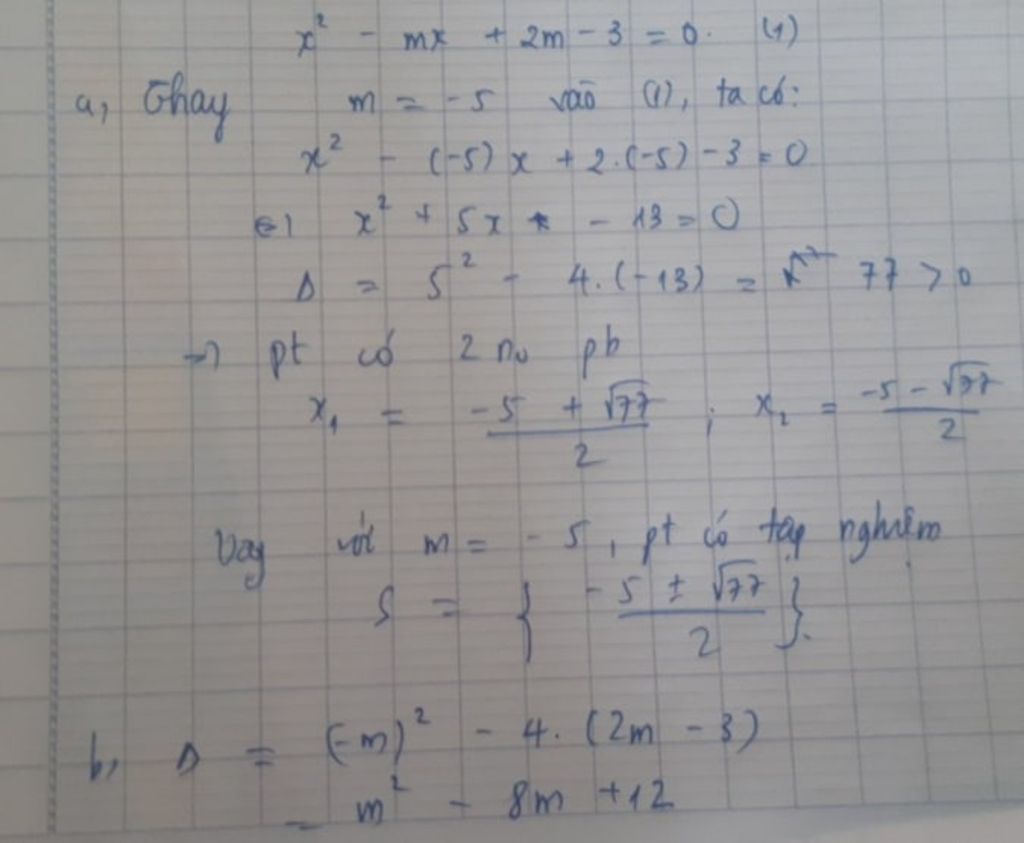 x² - mx + 2m - 3 = 0. (1)
a, Thay m = -5 vào (1), ta có:
x² - (-5)x + 2.(-5) - 3 = 0
(=) x² + 5x - 13 = 0
Δ = 5² - 4.(-13) = 77 > 0
=) pt có 2 no pb
x₁ = (-5 + √77)/2 ; x₂ = (-5 - √77)/2
Vay với m = -5, pt có tập nghiệm
S = { (-5 ± √77)/2 }.
b, Δ = (-m)² - 4. (2m - 3)
= m² - 8m + 12